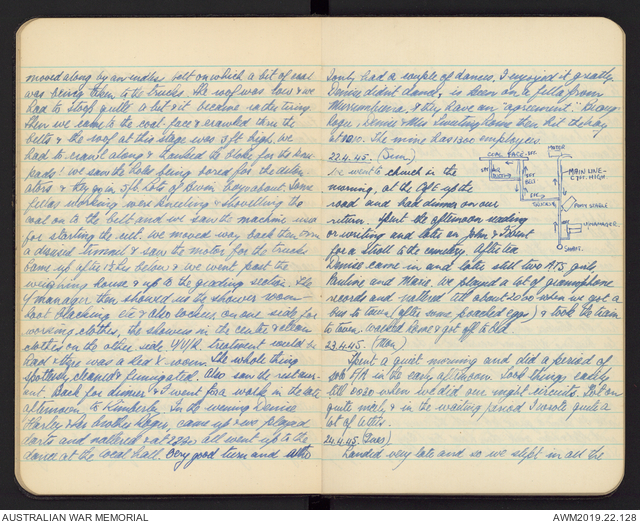 moved along by an endless belt on which a bit of coal
was being taken to the trucks. The roof was low & we
had to stoop quite a bit & it became rather tiring
then we came to the coal face & crawled thru the
belts & the roof at this stage was 3ft high, we
had to crawl along & thanked the bloke for the knee
pads! We saw the holes being bored for the deton
ators & they go in 5ft lots of 6 over 10 yds about. Some
fellas working were kneeling & shovelling the
coal on to the belt and we saw the machine used
for starting the cut. We moved way back then down
a disused tunnel & saw the motor for the trucks
Came up after & we went past the
weighing house & up to the grading section. The
manager then showed us the shower room
boot blacking etc & also lockers, on one side for
working clothes, the showers in the centre & clean
clothes on the other side. UV/R. treatment could be
had & there was a bed X-room. The whole thing
spotlessly cleaned & fumigated. Also saw the restaur-
ant. Back for dinner & I went for a walk in the late
afternoon to Kimberley. In the evening Denise
Harley & his brother Roger, came up & we played
darts and nattered & at 2230 all went up to the
dance at the local hall. Very good turn and altho
I only had a couple of dances, I enjoyed it greatly.
Denise didn't dance, is keen on a fella from
Murrumbeena, & they have an "agreement".
Roger, Denise & Miss Sweeting home then hit the hay
at 0010. The mine has 1300 employees.
22.4.45. (Sun)
We went to church in the
morning, at the C of E up the
road and had dinner on our
return. Spent the afternoon reading
or writing and later on John & I went
for a stroll to the cemetery. After tea
Denise came in and later still two ATS girls
Pauline and Marie. We played a lot of gramophone
records and nattered till about 2000 when we got a
bus to town (after some poached eggs) & took the train
to town. Walked home & got off to bed.
COAL FACE
MOTOR
MAIN LINE-
6FT. HIGH
BELT
PONY STABLE
MANAGER
SHAFT.
23.4.45. (Mon)
Spent a quiet morning and did a period of
F/A in the early afternoon. Took things easily
till 0020 when we did our night circuits. Got on
quite nicely & in the waiting period I wrote quite a
lot of letters.
24.4.45. (Tues)
Landed very late and so we slept in all the
AUSTRALIAN WAR MEMORIAL
AWM2019.22.128